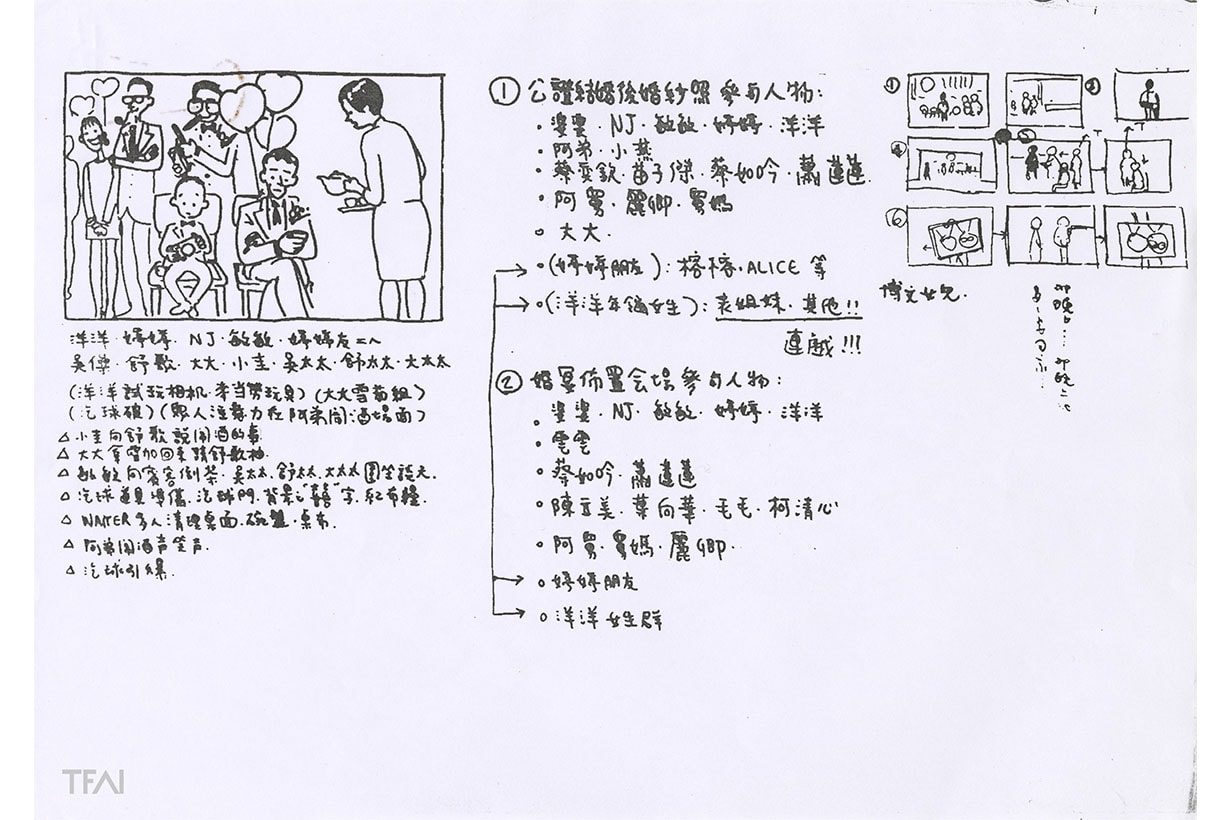 洋洋・婷婷・NJ・敏敏・婷婷友
吳傑・舒歌・大大・小圭・吳太太・舒太太・大太太
(洋洋試玩相机・麥当勞玩具)(大大雪茄組)
(汽球破)(眾人注意力在阿弟鬧酒場面)
△ 小圭向舒歌說鬧酒的事
△ 大大拿雪茄回來請舒歌抽
△ 敏敏向賓客倒茶・吳太太・舒太太・大太太圍坐談天.
△ 汽球道具準備・汽球門・背景"囍"字・紅布幔.
△ WAITER 多人清理桌面・碗盤・桌布.
△ 阿弟鬧酒声笑声.
△ 汽球引線.
① 公證結婚後婚紗照參与人物:
・婆婆・NJ・敏敏・婷婷・洋洋
・阿弟・小燕
・蔡奕欽・苗子傑・蔡如吟・蕭蓮蓮
・阿舅・麗卿・舅媽
○ 大大・
○(婷婷朋友):榕榕・ALICE 等
○(洋洋年齡女生):表姐妹・其他!!
連戲!!!
② 婚宴佈置会場參与人物:
・婆婆・NJ・敏敏・婷婷・洋洋
・雲雲
・蔡如吟・蕭蓮蓮
・陳立美・葉向華・毛毛・柯清心
・阿舅・舅媽・麗卿・
○ 婷婷朋友
○ 洋洋女生群
①
②
④
⑤
⑥
T
T
博文女兒.
TFAI